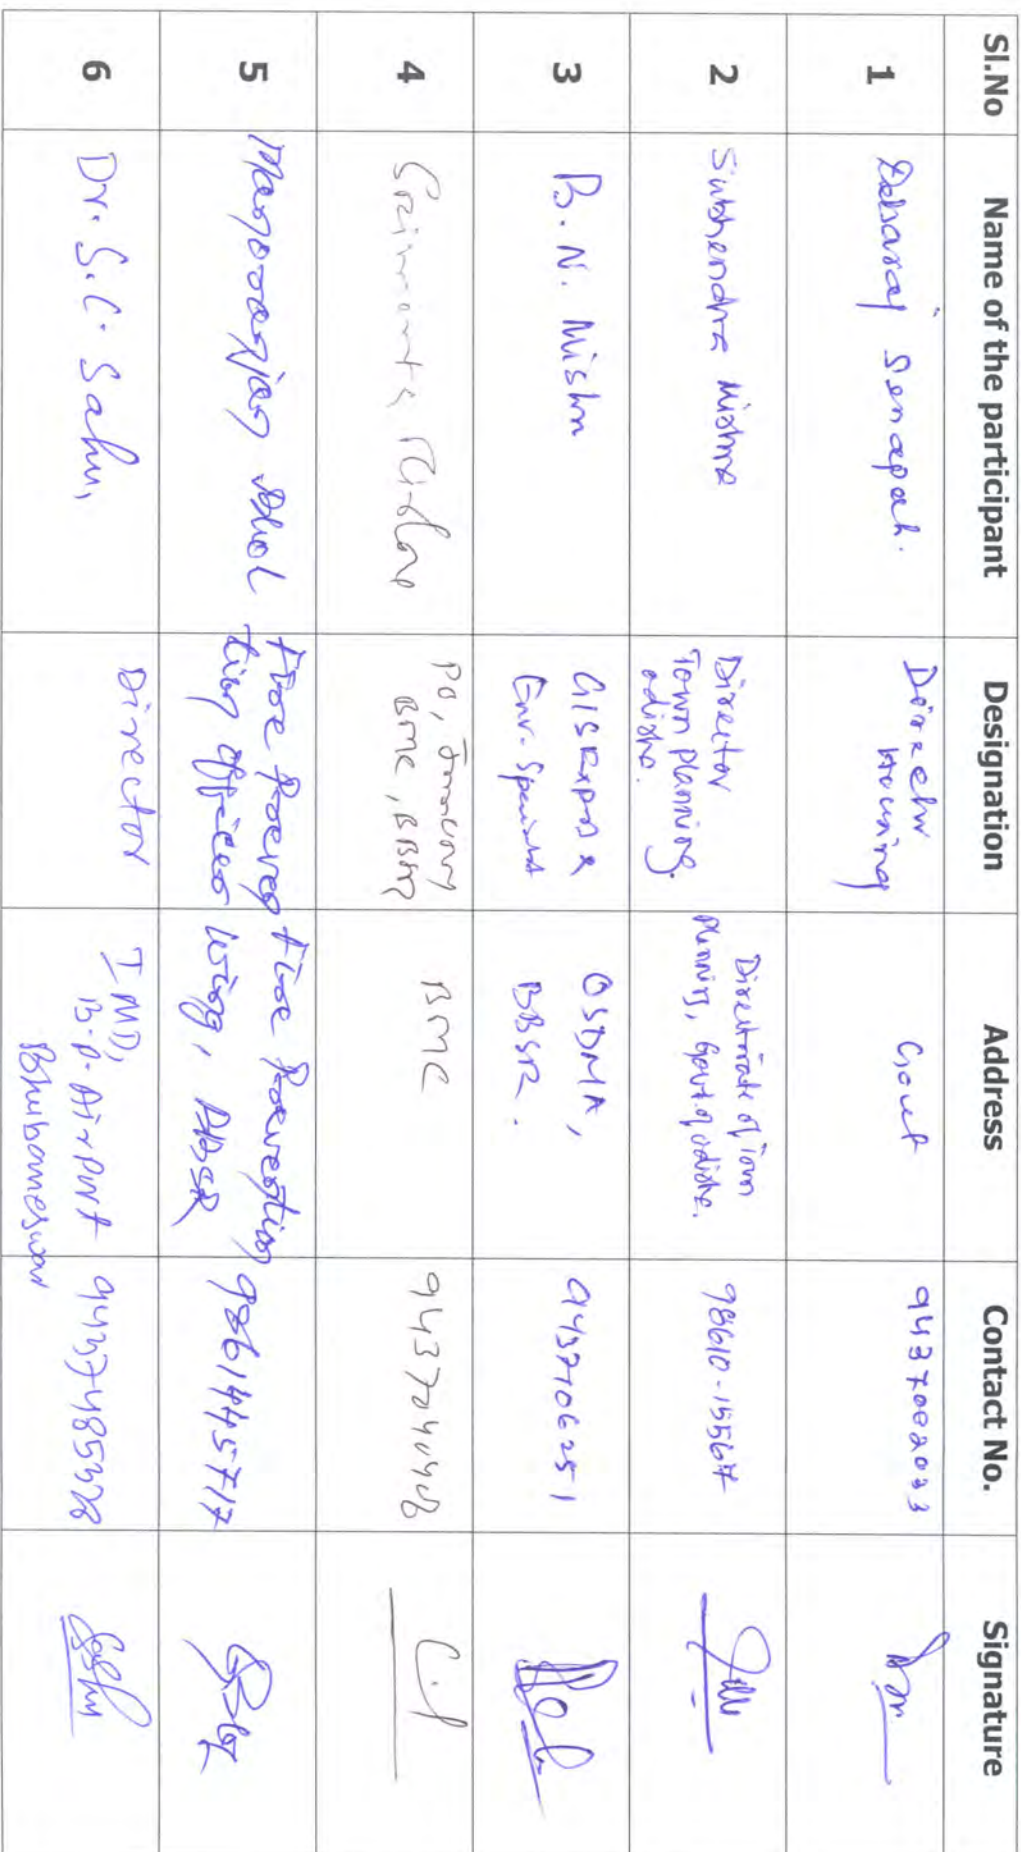 Sl.No Name of the participant Designation Address Contact No. Signature
1 Debaraj Senapati. Director Housing Govt 9437002033
2 Subhendra Mishra Director Town planning. odisha. Directorate of Town planning, Govt. of odisha. 98610-15567
3 B. N. Mishra GIS Expert & Env. Specialist OSDMA, BBSR. 9437210625
4 PO, BMC, BBSR BMC
5 Fire Preven ting officer Fire Prevention wing, BBSR 9861445717
6 Dr. S.C. Sahu, Director IMD, B.P. Airport Bhubaneswar 9437485328 Sahu